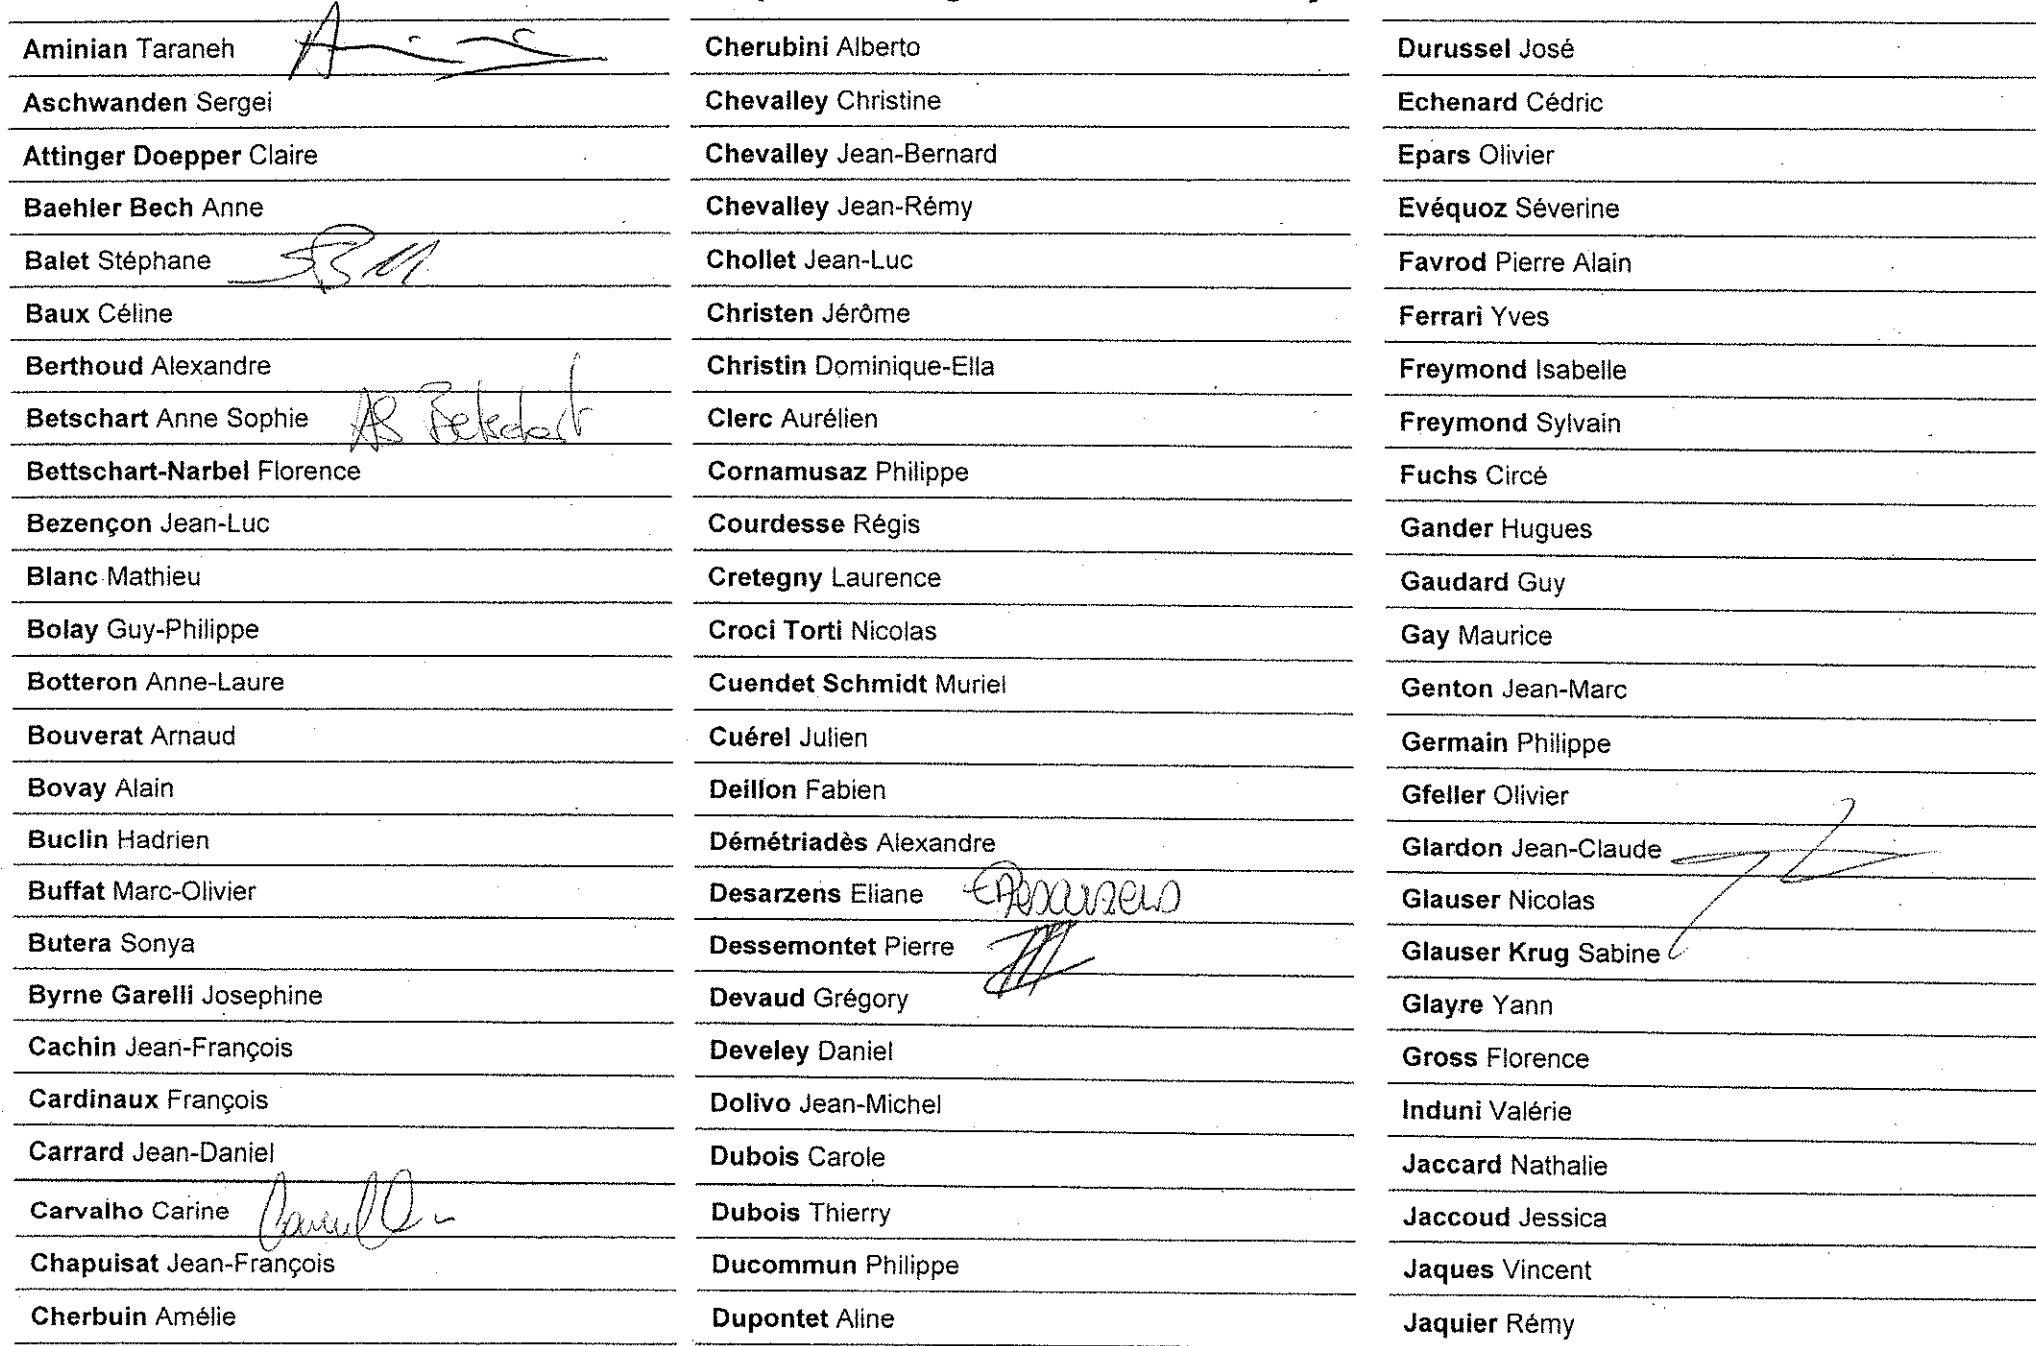 Aminian Taraneh
Aschwanden Sergei
Attinger Doepper Claire
Baehler Bech Anne
Balet Stéphane
Baux Céline
Berthoud Alexandre
Betschart Anne Sophie AS Betschart
Bettschart-Narbel Florence
Bezençon Jean-Luc
Blanc Mathieu
Bolay Guy-Philippe
Botteron Anne-Laure
Bouverat Arnaud
Bovay Alain
Buclin Hadrien
Buffat Marc-Olivier
Butera Sonya
Byrne Garelli Josephine
Cachin Jean-François
Cardinaux François
Carrard Jean-Daniel
Carvalho Carine
Chapuisat Jean-François
Cherbuin Amélie
Cherubini Alberto
Chevalley Christine
Chevalley Jean-Bernard
Chevalley Jean-Rémy
Chollet Jean-Luc
Christen Jérôme
Christin Dominique-Ella
Clerc Aurélien
Cornamusaz Philippe
Courdesse Régis
Cretegny Laurence
Croci Torti Nicolas
Cuendet Schmidt Muriel
Cuérel Julien
Deillon Fabien
Démétriadès Alexandre
Desarzens Eliane EDesarzens
Dessemontet Pierre
Devaud Grégory
Develey Daniel
Dolivo Jean-Michel
Dubois Carole
Dubois Thierry
Ducommun Philippe
Dupontet Aline
Durussel José
Echenard Cédric
Epars Olivier
Evéquoz Séverine
Favrod Pierre Alain
Ferrari Yves
Freymond Isabelle
Freymond Sylvain
Fuchs Circé
Gander Hugues
Gaudard Guy
Gay Maurice
Genton Jean-Marc
Germain Philippe
Gfeller Olivier
Glardon Jean-Claude
Glauser Nicolas
Glauser Krug Sabine
Glayre Yann
Gross Florence
Induni Valérie
Jaccard Nathalie
Jaccoud Jessica
Jaques Vincent
Jaquier Rémy